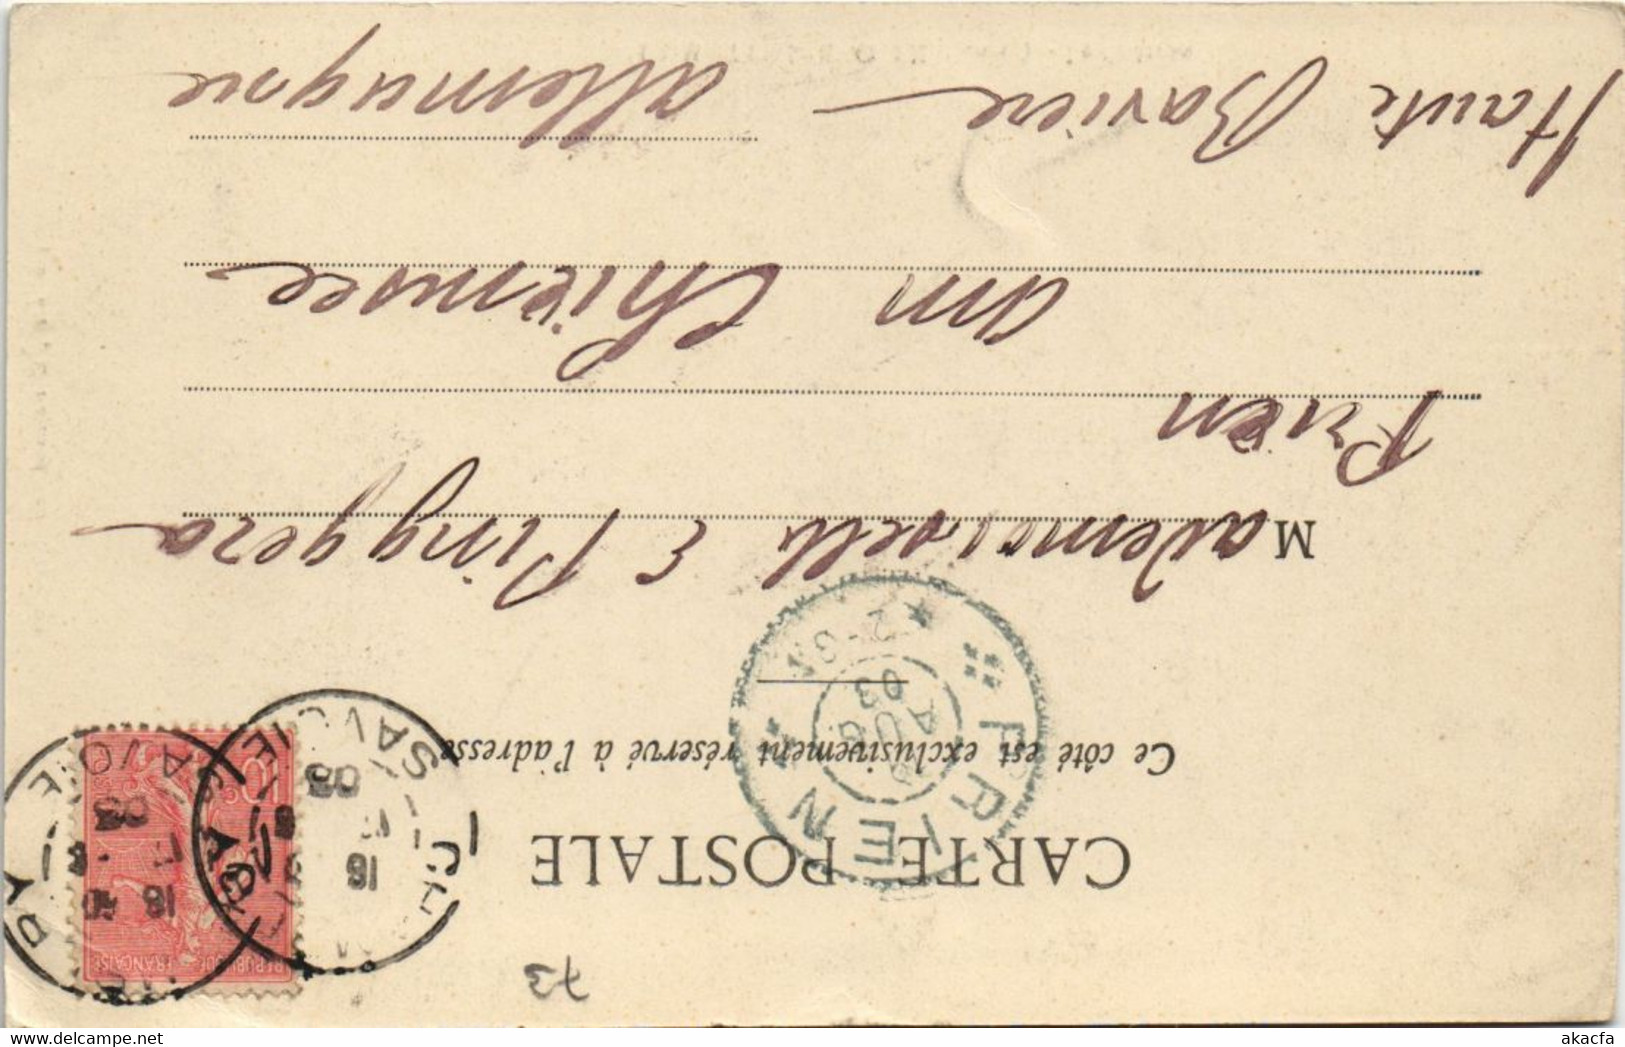 73
CARTE POSTALE
Ce côté est exclusivement réservé à l'adresse
RÉPUBLIQUE FRANÇAISE
10
SAVOIE
16
17
03
PRIEN
AUG
03
2-3N
Mademoiselle E Pinggera
Prien
am Chiemsee
Haute Bavière
allemagne
akacfa